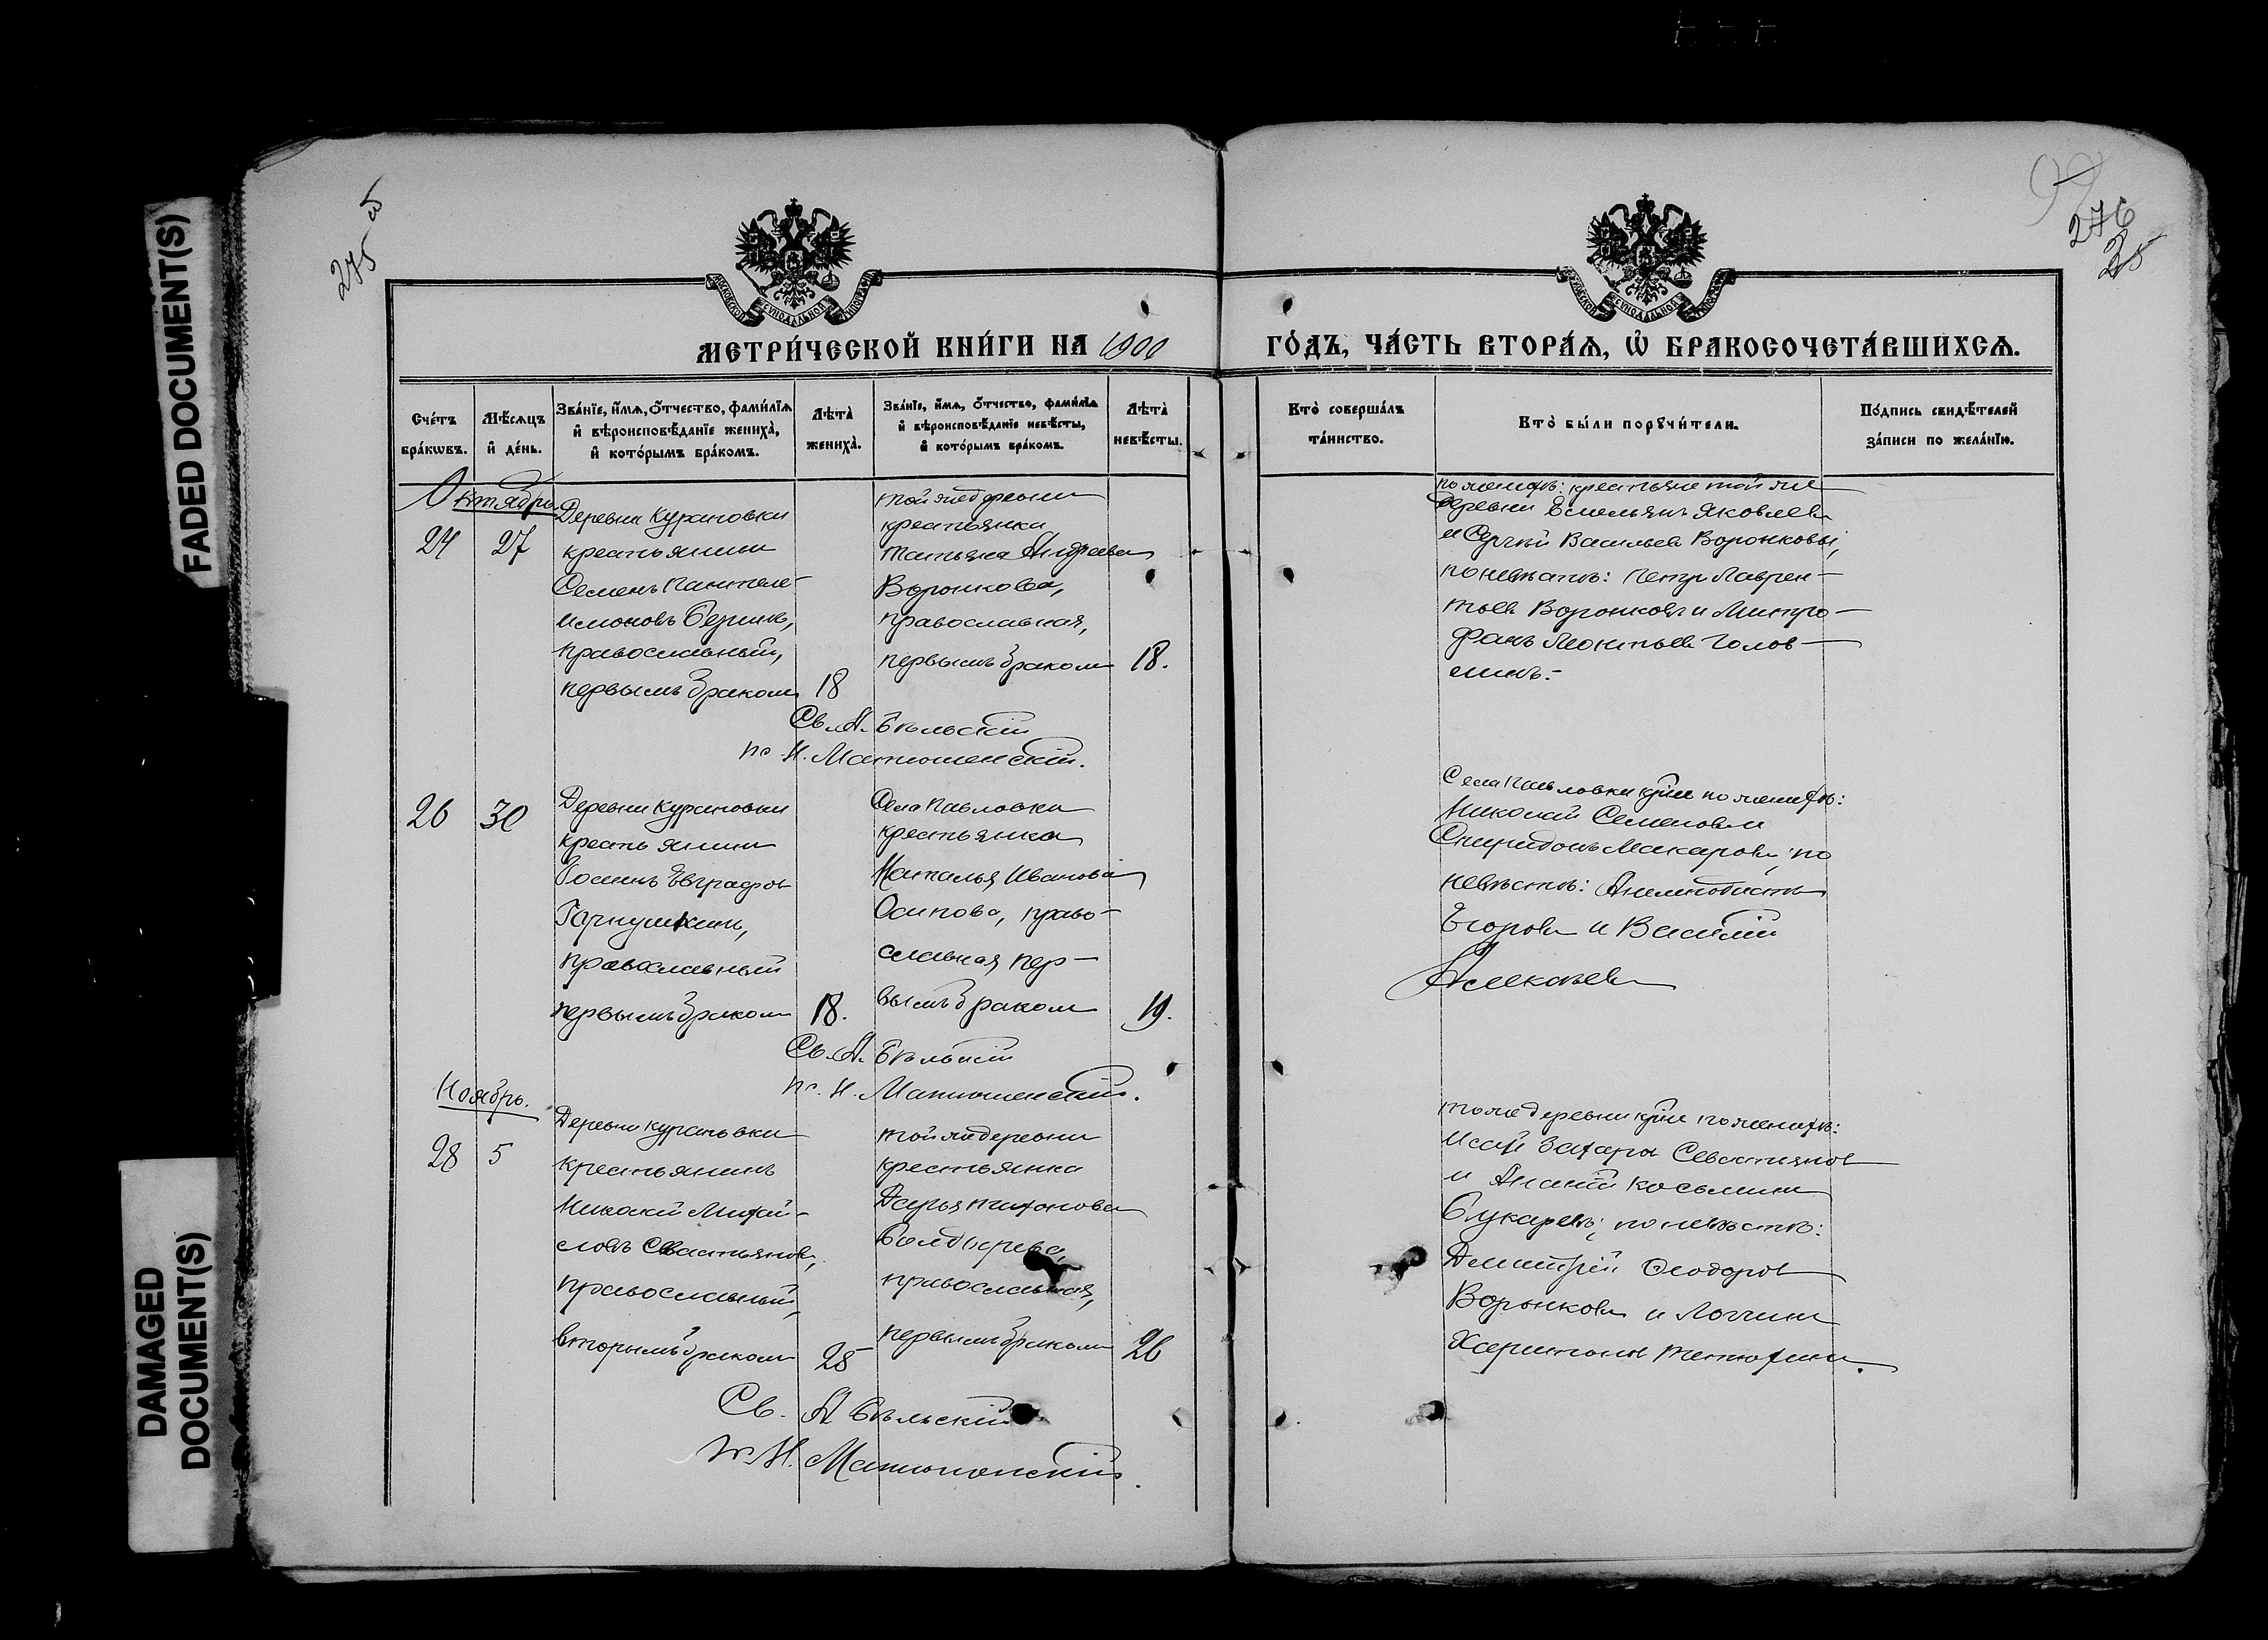 FADED DOCUMENT(S)
DAMAGED
DOCUMENT(S)
275
276
25
МОСКОВСКОЙ СУНОДАЛЬНОЙ ТИПОГРАФІИ
МОСКОВСКОЙ СУНОДАЛЬНОЙ ТИПОГРАФІИ
МЕТРИ́ЧЕСКОЙ КНИ́ГИ НА 1900
ГО́ДЪ, ЧА́СТЬ ВТОРА́Ѧ, Ѡ БРАКОСОЧЕТА́ВШИХСѦ.
Сче́тъ
бра́кѡвъ.
Мѣ́сѧцъ
и҆ де́нь.
Зва́нїе, и҆́мѧ, ѻ҆́тчество, фами́лїѧ
и҆ вѣроисповѣ́данїе жениха̀,
и҆ кото́рымъ бра́комъ.
Лѣта̀
жениха̀.
Зва́нїе, и҆́мѧ, ѻ҆́тчество, фами́лїѧ
и҆ вѣроисповѣ́данїе невѣ́сты,
и҆ кото́рымъ бра́комъ.
Лѣта̀
невѣ́сты.
Кто̀ соверша́лъ
та́инство.
Кто̀ бы́ли порꙋчи́тели.
По́дпись свидѣ́телей
за́писи по жела́нїю.
Октябрь
24
27
Деревни Курановки
крестьянинъ
Семенъ Пантеле-
имоновъ
православный,
первымъ бракомъ
18
той же деревни
крестьянка
Татьяна Андреева
Воронкова,
православная,
первымъ бракомъ
18.
Св. А. Бѣльскій
пс. И. Матюшенскій.
по женихѣ: крестьяне той же
деревни Емельянъ Яковлевъ
и Сергѣй Васильевъ Воронковы;
по невѣстѣ: Петръ Лаврен-
тьевъ Воронковъ и Митро-
фанъ Леонтьевъ Голов-
26
30
Деревни Курановки
крестьянинъ
Евграфовъ
православный
первымъ бракомъ
18.
Села Павловки
крестьянка
Наталья Иванова
Осипова, право-
славная пер-
вымъ бракомъ
19.
Св. А. Бѣльскій
пс. И. Матюшенскій.
Села Павловки кр̃не по женихѣ:
Николай Семеновъ и
Спиридонъ Макаровъ, по
невѣстѣ:
Егоровъ и Василій
Алексѣевъ
Ноябрь.
28
5
Деревни Курановки
крестьянинъ
Николай Михай-
ловъ Севастьяновъ,
православный,
вторымъ бракомъ
28
той же деревни
крестьянка
Дарья Тихонова
Болдырева,
православная,
первымъ бракомъ
26
Св. А Бѣльскій
пс. И. Матюшенскій.
той же деревни кр̃не по женихѣ:
Захаровъ Севастьяновъ
и Косьминъ
по невѣстѣ:
Дмитрій Ѳеодоровъ
Воронковъ и Логгинъ
Харитоновъ